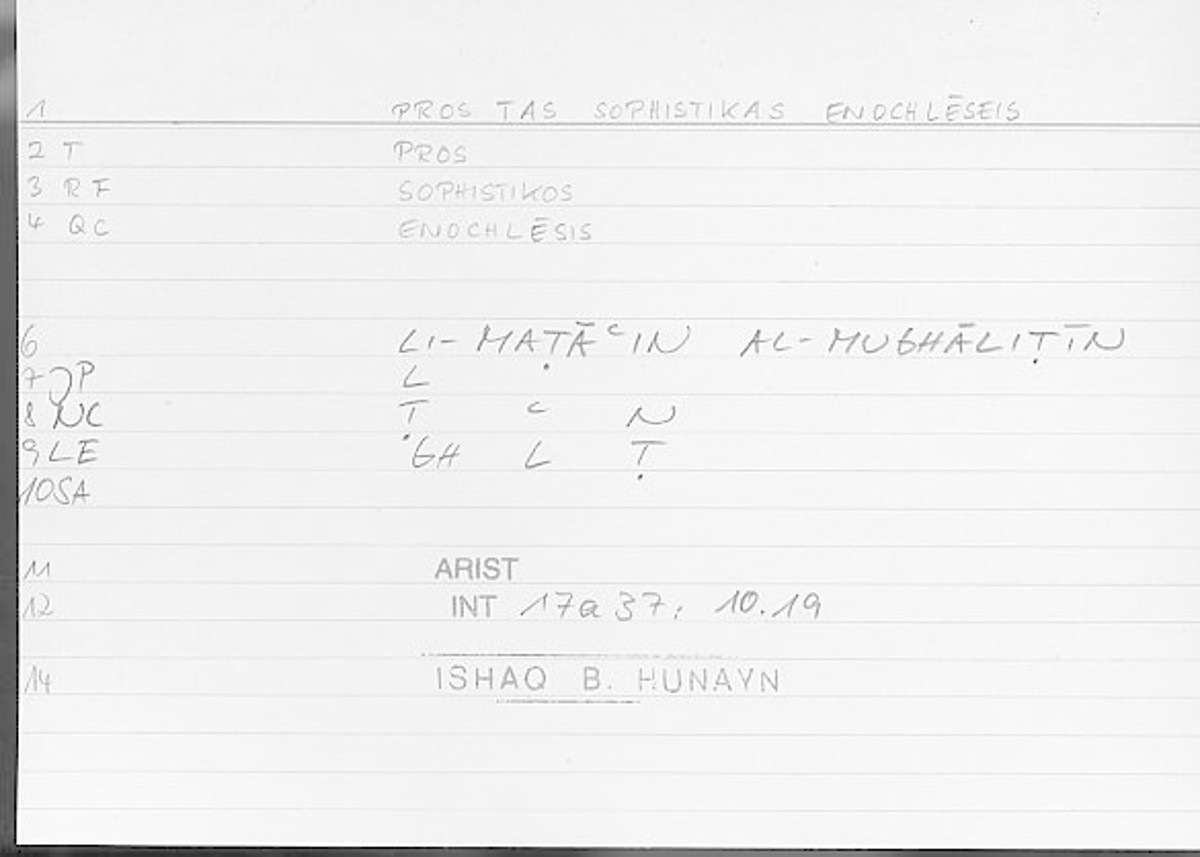 1 PROS TAS SOPHISTIKAS ENOCHLĒSEIS
2 T PROS
3 RF SOPHISTIKOS
4 QC ENOCHLĒSIS
6 LI-MAṬĀʿIN AL-MUGHĀLIṬĪN
7 P L
8 NC Ṭ ʿ N
9 LE GH L Ṭ
10 SA
11 ARIST
12 INT 17a37; 10.19
14 ISHAQ B. HUNAYN